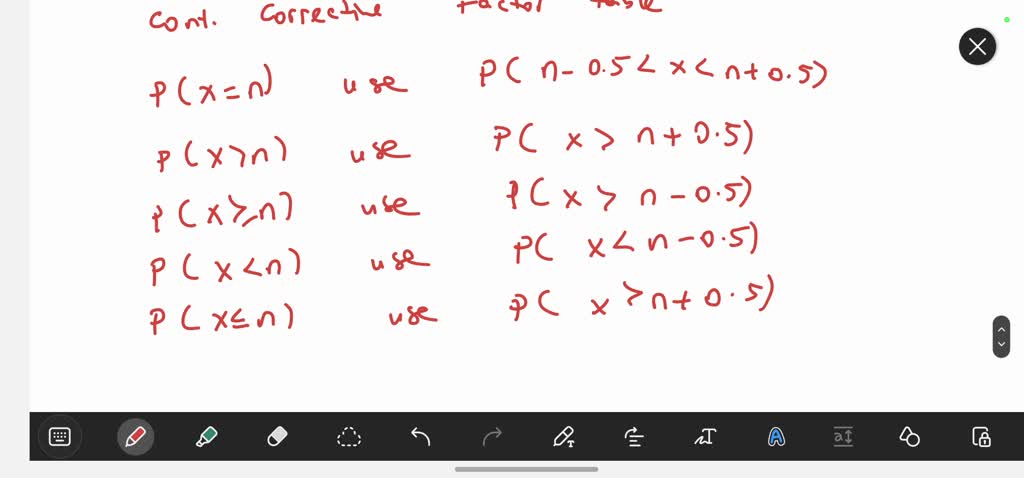 Cont. Corrective Factor table
P(x=n) use P(n-0.5<x<n+0.5)
P(x>n) use P(x>n+0.5)
P(x≥n) use P(x>n-0.5)
P(x<n) use P(x<n-0.5)
P(x≤n) use P(x>n+0.5)